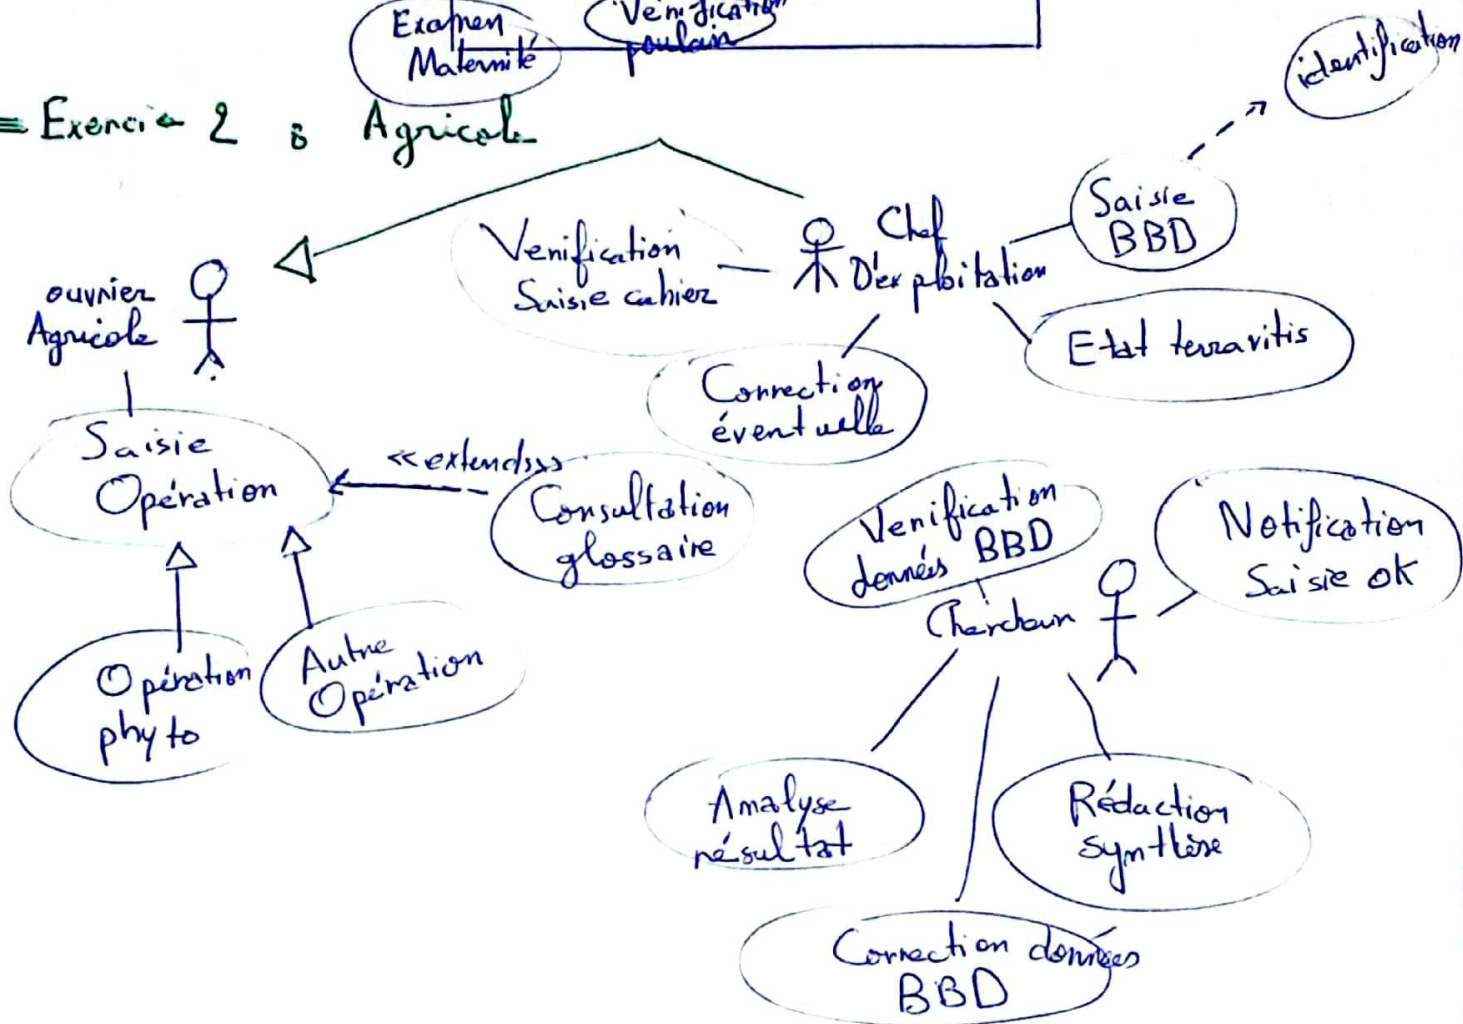 Examen
Maternité
Verification
poulain
identification
Exercice 2 : Agricole
Saisie
BBD
Chef
D'exploitation
Verification
Saisie cahier
ouvrier
Agricole
Etat terravitis
Correction
éventuelle
Saisie
Opération
<<extends>>
Consultation
glossaire
Verification
données BBD
Notification
Saisie ok
Chercheur
Opération
phyto
Autre
Opération
Analyse
résultat
Rédaction
synthèse
Correction données
BBD